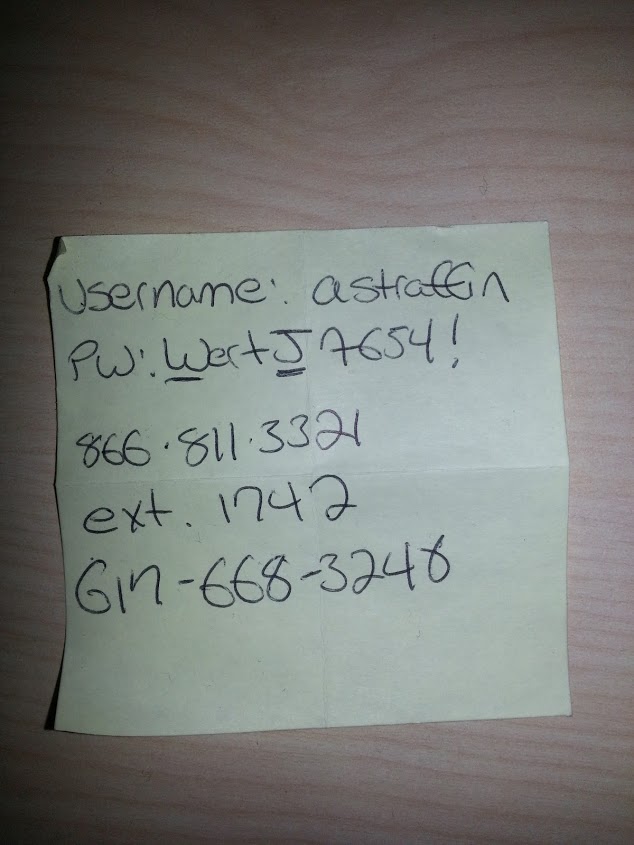 Username: astraffin
PW: WertJ7654!
866.811.3321
ext. 1742
617-668-3248